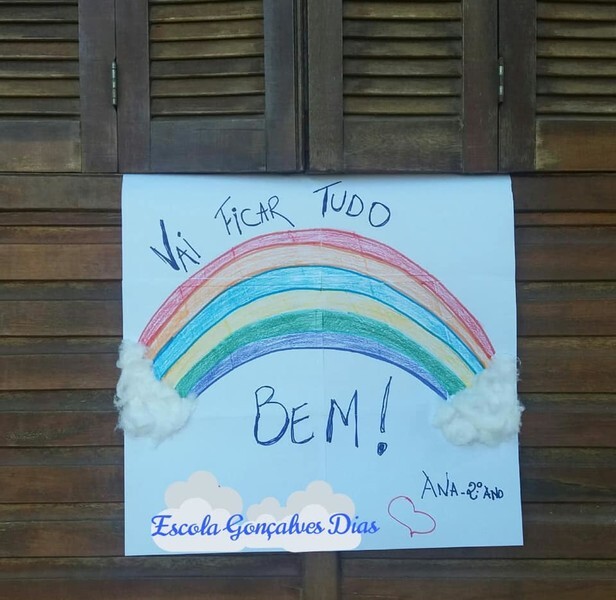 VAi FiCAR TUDO
BEM!
ÀNA-2º ANO
Escola Gonçalves Dias